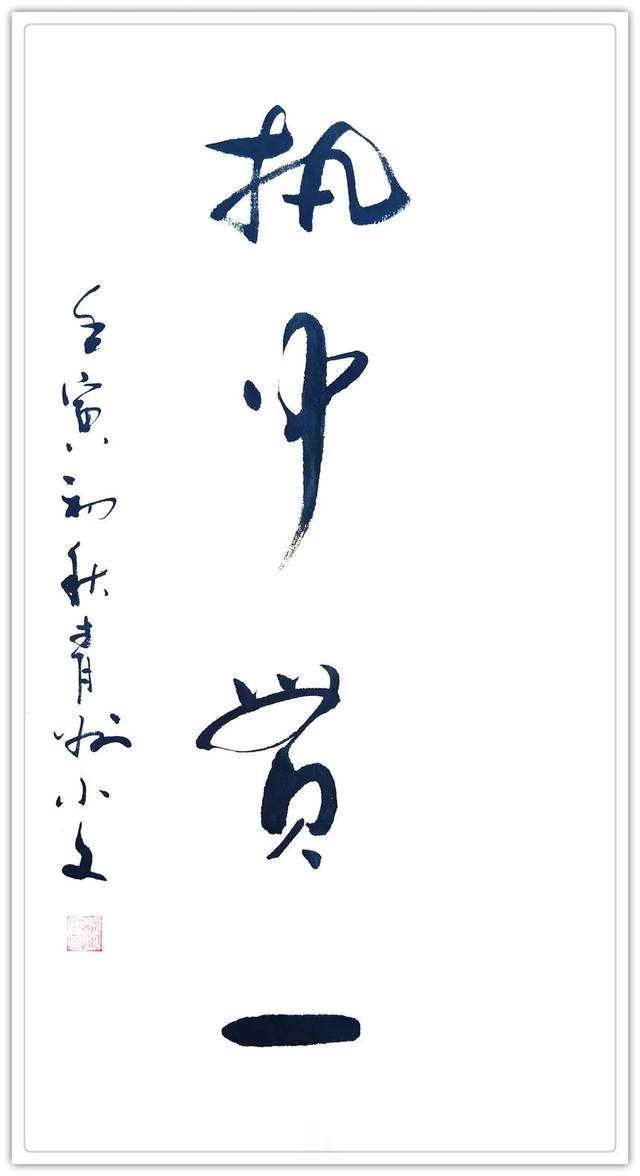 执中贯一
壬寅初秋青州小文